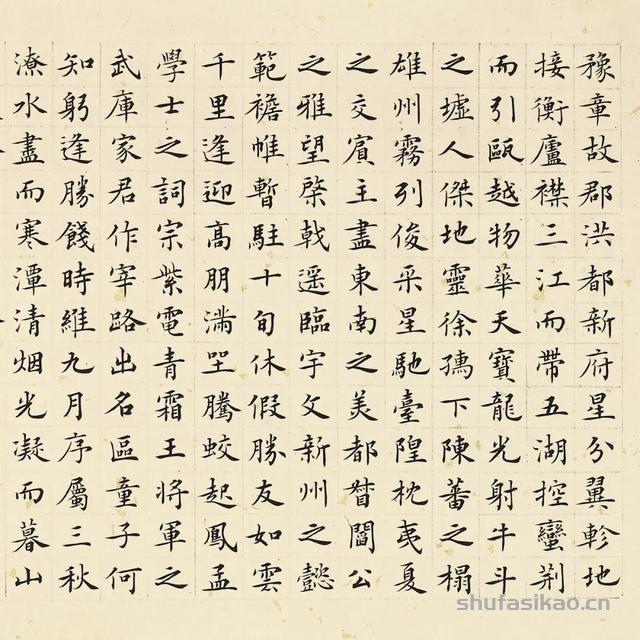 豫章故郡洪都新府星分翼軫地
接衡廬襟三江而帶五湖控蠻荊
而引甌越物華天寶龍光射牛斗
之墟人傑地靈徐孺下陳蕃之榻
雄州霧列俊采星馳臺隍枕夷夏
之交賓主盡東南之美都督閻公
之雅望棨戟遥臨宇文新州之懿
範襜帷暫駐十旬休假勝友如雲
千里逢迎高朋滿坐騰蛟起鳳孟
學士之詞宗紫電青霜王將軍之
武庫家君作宰路出名區童子何
知躬逢勝餞時維九月序屬三秋
潦水盡而寒潭清烟光凝而暮山
shufasikao.cn